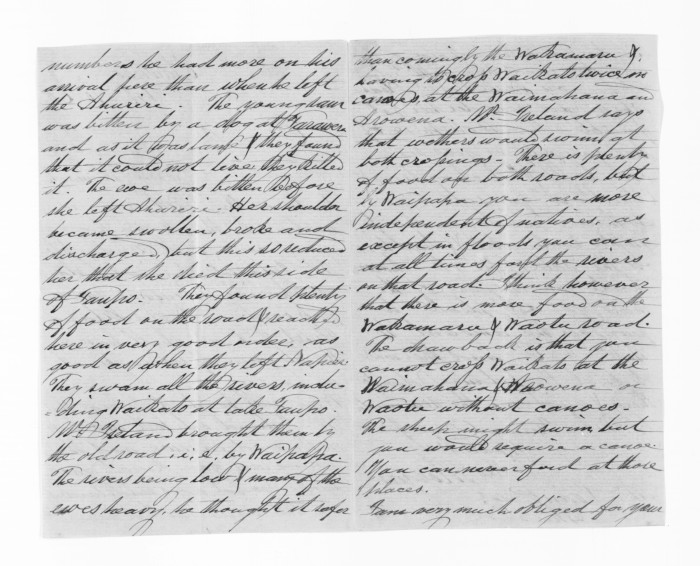 numbers he had more on his
arrival here than when he left
the Ahuriri. The young lamb
was bitten by a dog at Tarawera
and as it was lame & they found
that it could not live they killed
it. The ewe was bitten before
she left Ahuriri. Her shoulder
became swollen, broke and
discharged, but this so reduced
her that she died this side
of Taupo. They found plenty
of food on the road & reached
here in very good order, as
good as when they left Napier.
They swam all the rivers, inclu-
-ding Waikato at lake Taupo.
Mr. Ireland brought them by
the old road i.e. by Waipapa.
The rivers being low & many of the
ewes heavy, he thought it safer
than coming by the Wakamaru &
having to cross Waikato twice on
canoes, at the Waimahana and
Orowena. Mr. Ireland says
that wethers would swim at
both crossings. There is plenty
of food on both roads, but
by Waipapa you are more
independent of natives, as
except in floods you can
at all times ford the rivers
on that road. I think however
that there is more food on the
Wakamaru & Waotu road.
The drawback is that you
cannot cross Waikato at the
Waimahana & Orowena or
Waotu without canoes.
The sheep might swim but
you would require a canoe.
You can never ford at those
places.
I am very much obliged for your